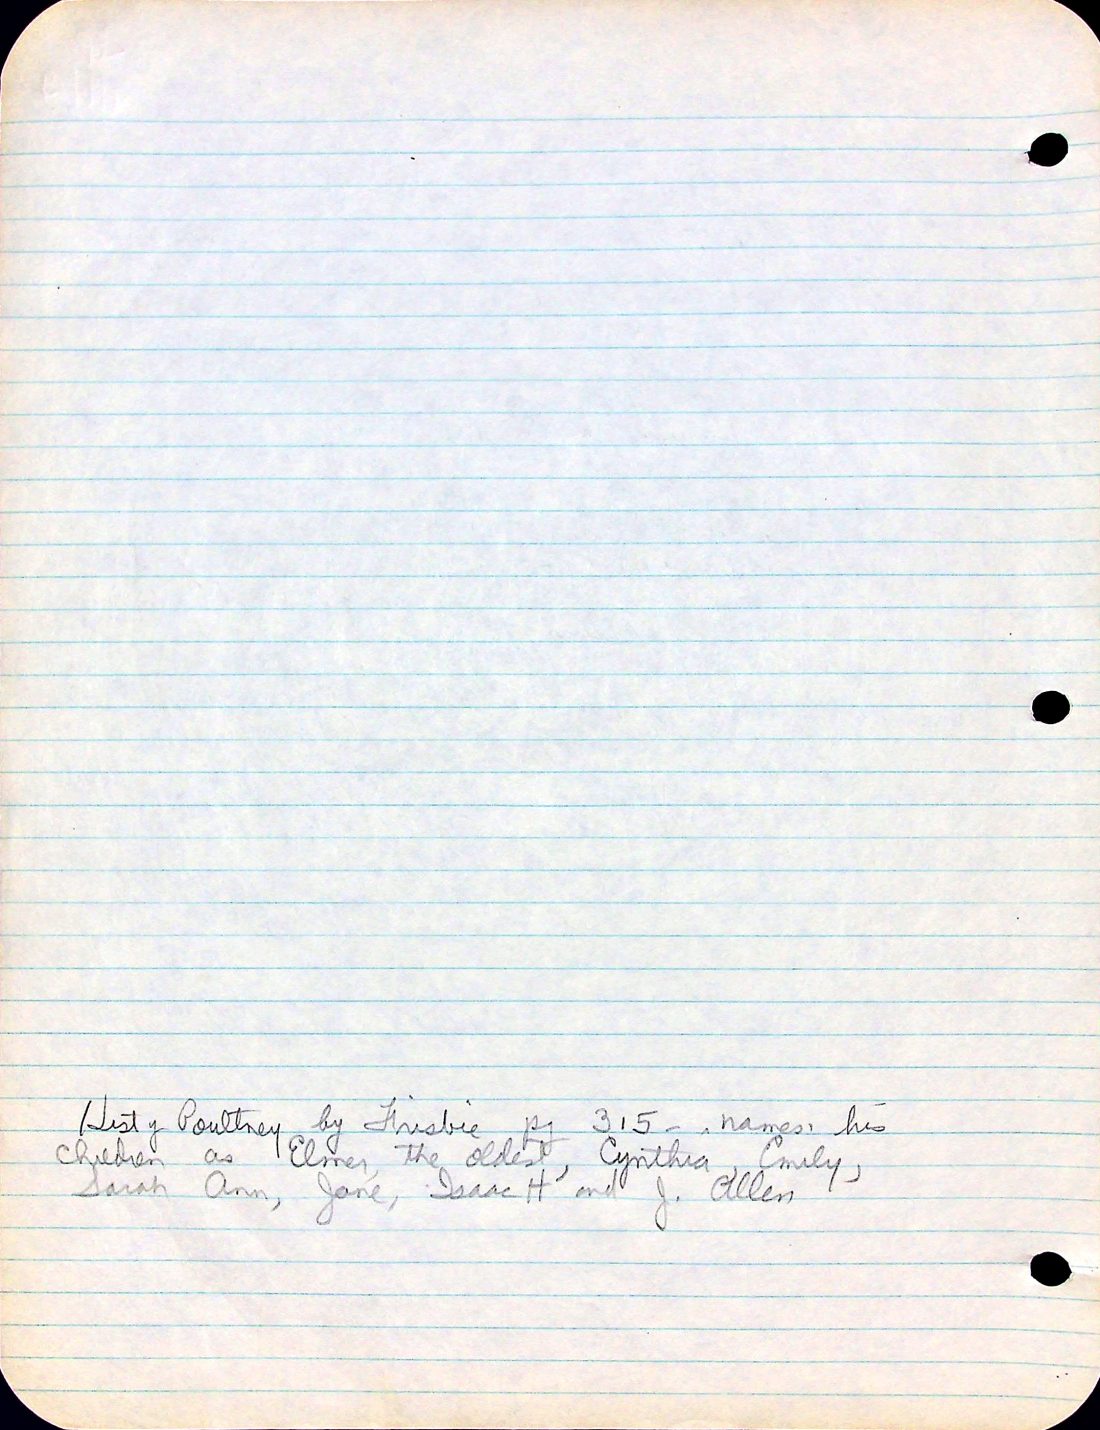 Hist of Poultney by Frisbie pg 315 - names his
children as Elmer, the oldest, Cynthia, Emily,
Sarah Ann, Jane, Isaac H and J. Allen